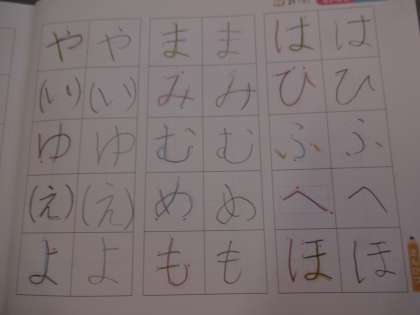 や や ま ま は は
(い) (い) み み ひ ひ
ゆ ゆ む む ふ ふ
(え) (え) め め へ へ
よ よ も も ほ ほ